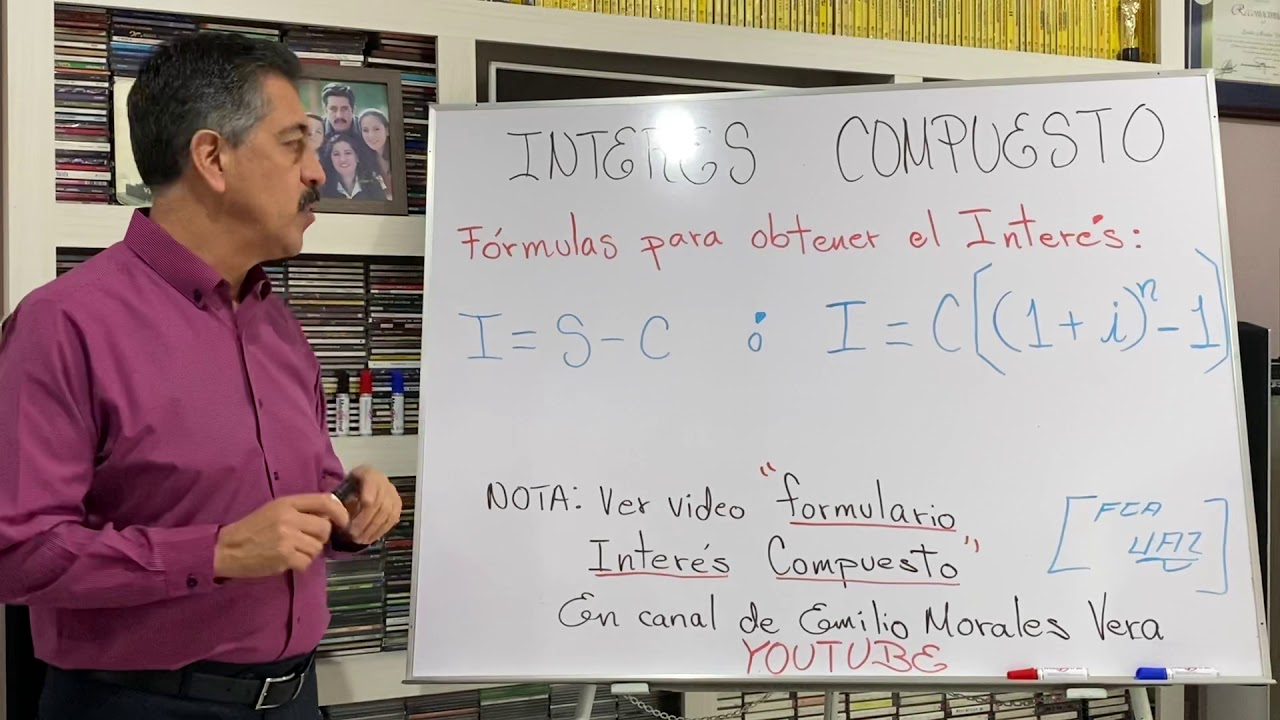 INTERES COMPUESTO
Fórmulas para obtener el Interés:
I = S - C ó I = C[(1 + i)ⁿ - 1]
NOTA: Ver video "formulario
Interés Compuesto"
En canal de Emilio Morales Vera
YOUTUBE
[FCA
UAZ]